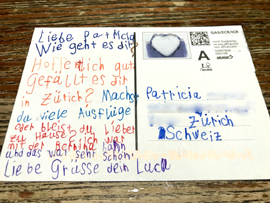 Liebe Patricia
Wie geht es dir?
Hoffentlich gut
Gefällt es dir
in Zürich? Machst
du viele Ausflüge
oder bleist du lieber
zu Hause? Ich war
mit der Bernina Bahn
und das war sehr schön.
Liebe Grüsse dein Luca
A
Patricia
Zürich
Schweiz